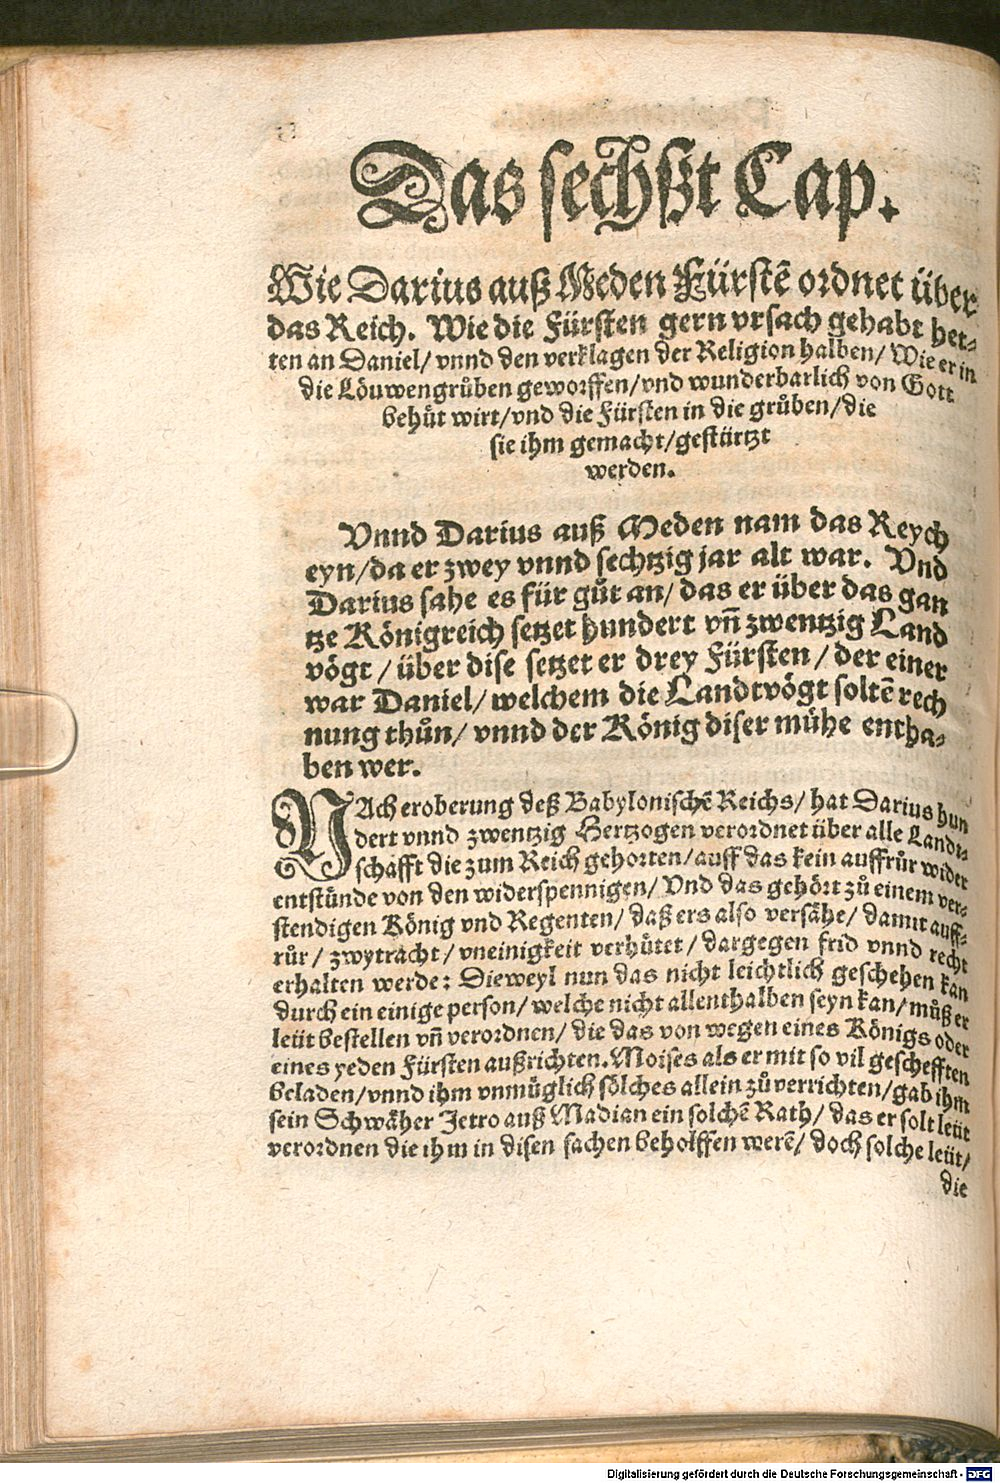 Das sechßt Cap.
Wie Darius auß Meden Fürstē ordnet über
das Reich. Wie die Fürsten gern vrsach gehabt het⸗
ten an Daniel/ vnnd den verklagen der Religion halben/ Wie er in
die Löuwengrůben geworffen/ vnd wunderbarlich von Gott
behüt wirt/ vnd die Fürsten in die grůben/ die
sie ihm gemacht/ gestürtzt
werden.
Vnnd Darius auß Meden nam das Reych
eyn/ da er zwey vnnd sechtzig jar alt war. Vnd
Darius sahe es für gůt an/ das er über das gan
tze Königreich setzet hundert vñ zwentzig Land
vögt/ über dise setzet er drey Fürsten/ der einer
war Daniel/ welchem die Landtvögt soltē rech
nung thůn/ vnnd der König diser mühe entha⸗
ben wer.
NAch eroberung deß Babylonischē Reichs/ hat Darius hun
dert vnnd zwentzig Hertzogen verordnet über alle Landt⸗
schafft die zum Reich gehorten/ auff das kein auffrůr wider
entstünde von den widerspennigen/ Vnd das gehört zů einem ver⸗
stendigen König vnd Regenten/ daß ers also versähe/ damit auff⸗
růr/ zwytracht/ vneinigkeit verhütet/ dargegen frid vnnd recht
erhalten werde: Dieweyl nun das nicht leichtlich geschehen kan
durch ein einige person/ welche nicht allenthalben seyn kan/ můß er
leüt bestellen vñ verordnen/ die das von wegen eines Königs oder
eines yeden Fürsten außrichten. Moises als er mit so vil gescheften
beladen/ vnnd ihm vnmüglich sölches allein zů verrichten/ gab ihm
sein Schwäher Jetro auß Madian ein solchē Rath/ das er solt leüt
verordnen die ihm in disen sachen beholffen werē/ doch solche leüt/
die
Digitalisierung gefördert durch die Deutsche Forschungsgemeinschaft - DFG